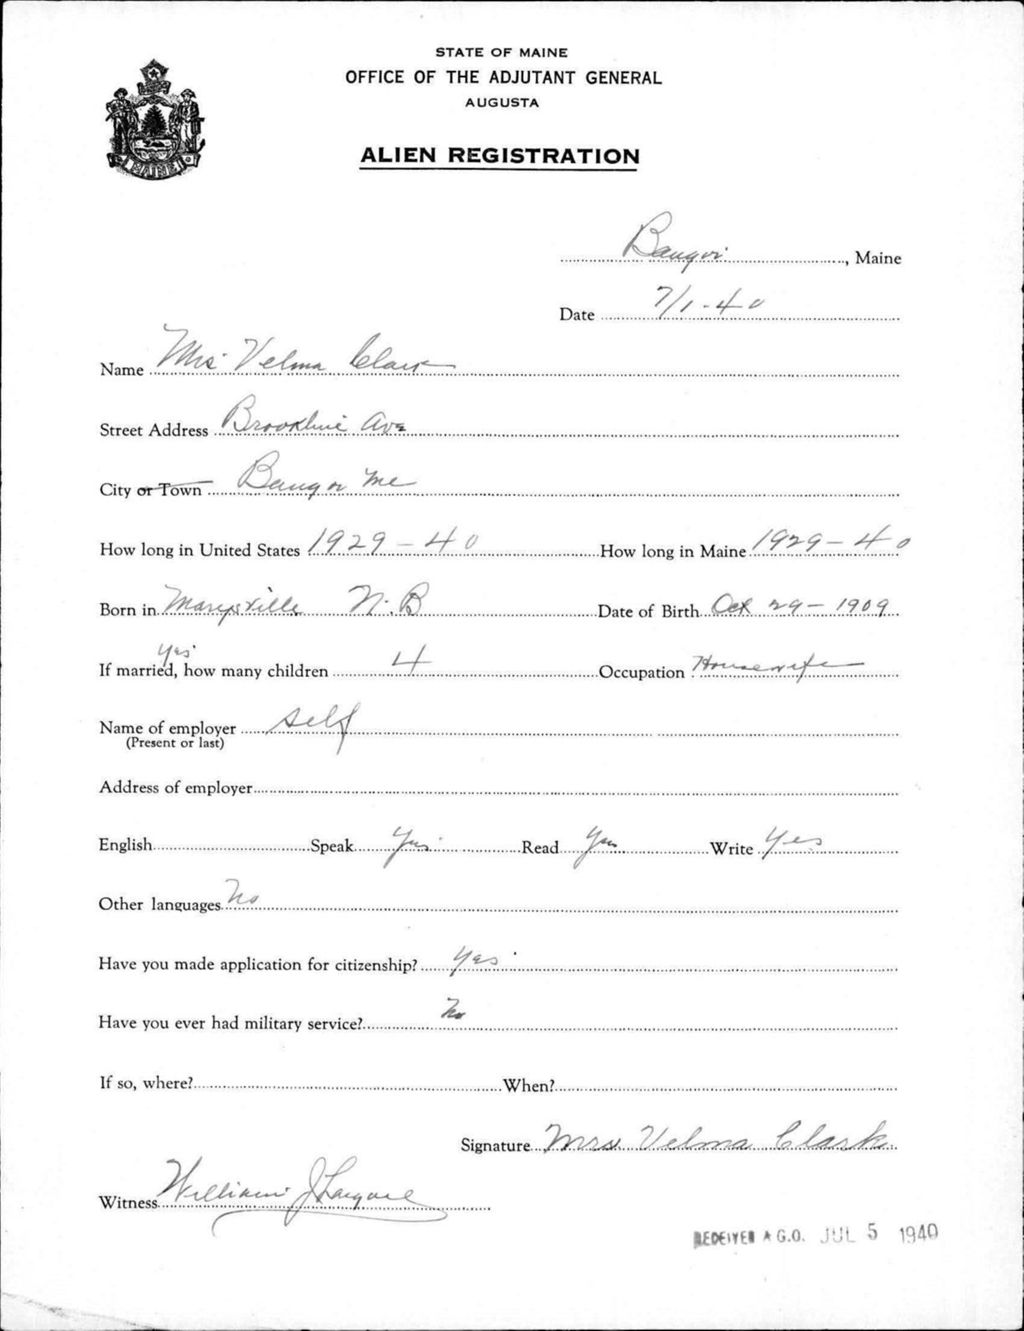 STATE OF MAINE
OFFICE OF THE ADJUTANT GENERAL
AUGUSTA
ALIEN REGISTRATION
MAINE
Bangor, Maine
Date 7/1-40
Name Mrs Velma Clark
Street Address Brookline Ave
City or Town Bangor Me
How long in United States 1929-40 How long in Maine 1929-40
Born in Marysville N.B Date of Birth Oct 29-1909
yes
If married, how many children 4 Occupation Housewife
Name of employer self
(Present or last)
Address of employer
English Speak Yes Read Yes Write Yes
Other languages No
Have you made application for citizenship? Yes
Have you ever had military service? No
If so, where? When?
Signature Mrs Velma Clark
Witness William J
RECEIVED A.G.O. JUL 5 1940